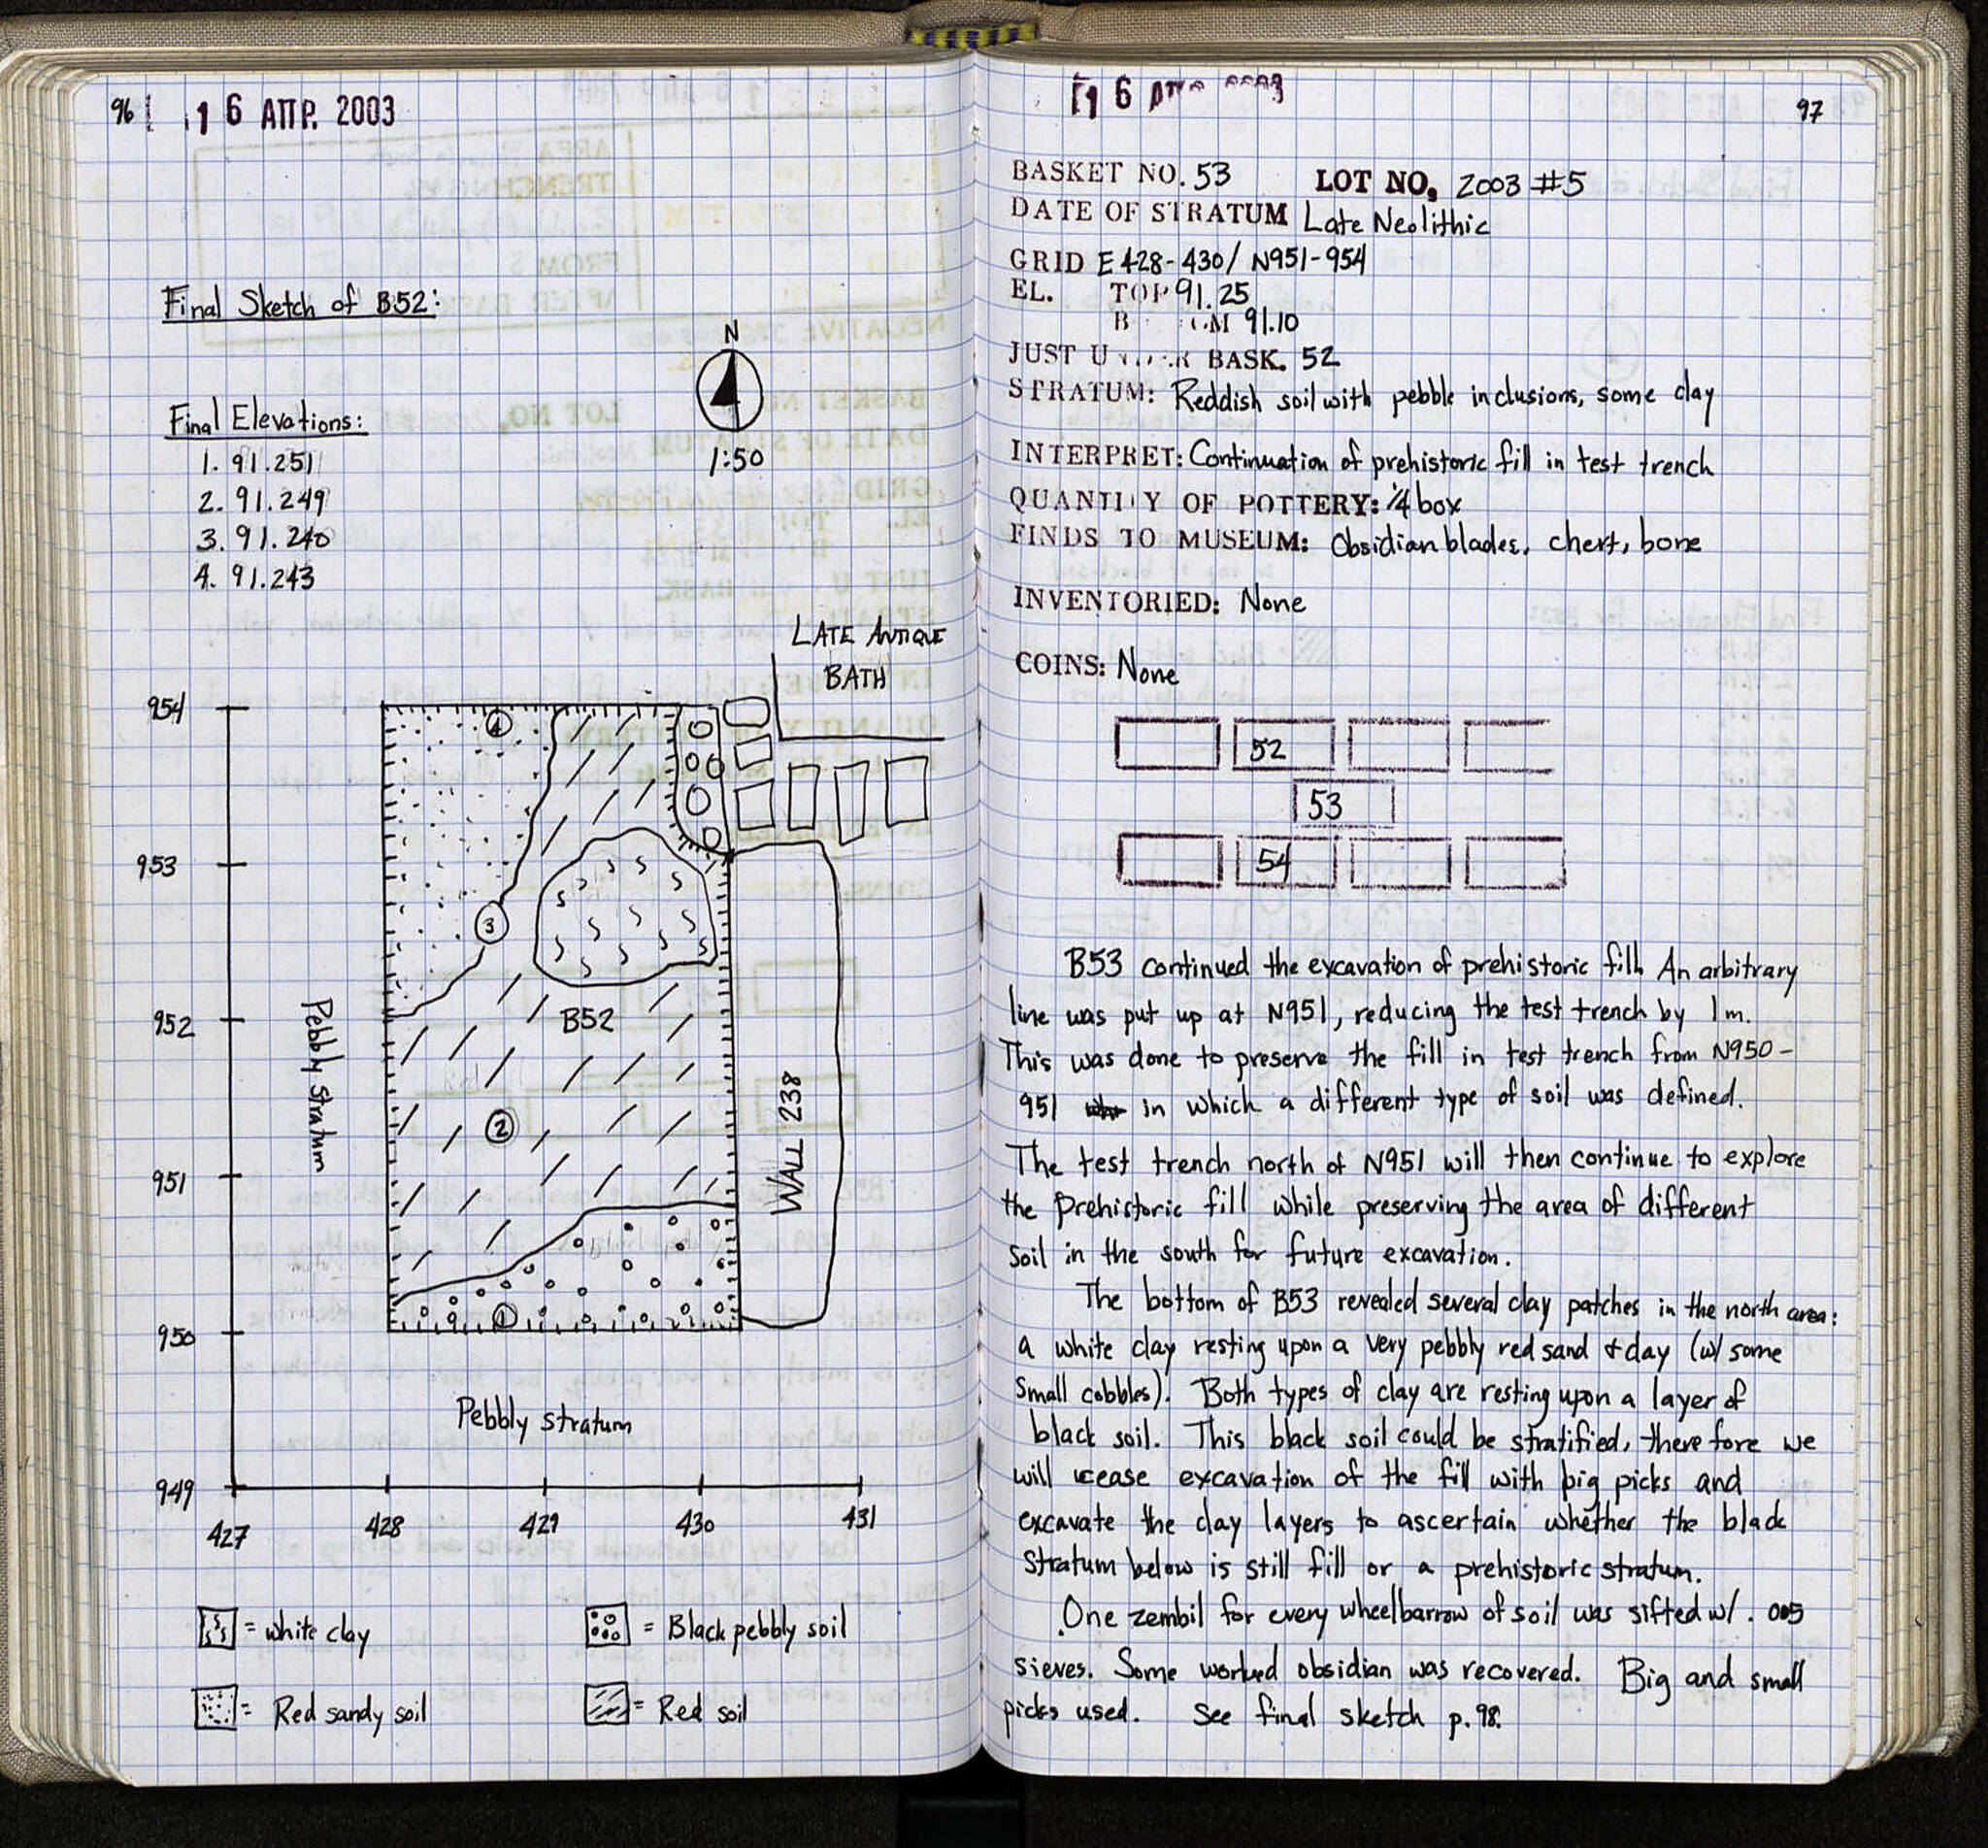 96
16 ΑΠΡ. 2003
Final Sketch of B52:
N
1:50
Final Elevations:
1. 91.251
2. 91.249
3. 91.240
4. 91.243
LATE ANTIQUE
BATH
954
953
952
951
950
949
427
428
429
430
431
4
3
B52
2
1
Pebbly stratum
WALL 238
Pebbly stratum
= white clay
= Black pebbly soil
= Red sandy soil
= Red soil
16
97
BASKET NO. 53 LOT NO, 2003 #5
DATE OF STRATUM Late Neolithic
GRID E428-430/ N951-954
EL. TOP 91.25
91.10
JUST UNDER BASK. 52
STRATUM: Reddish soil with pebble inclusions, some clay
INTERPRET: Continuation of prehistoric fill in test trench
QUANTITY OF POTTERY: 1/4 box
FINDS TO MUSEUM: Obsidian blades, chert, bone
INVENTORIED: None
COINS: None
52
53
54
B53 continued the excavation of prehistoric fill. An arbitrary
line was put up at N951, reducing the test trench by 1m.
This was done to preserve the fill in test trench from N950-
951 in which a different type of soil was defined.
The test trench north of N951 will then continue to explore
the prehistoric fill while preserving the area of different
soil in the south for future excavation.
The bottom of B53 revealed several clay patches in the north area:
a white clay resting upon a very pebbly red sand + clay (w/ some
small cobbles). Both types of clay are resting upon a layer of
black soil. This black soil could be stratified, therefore we
will cease excavation of the fill with big picks and
excavate the clay layers to ascertain whether the black
stratum below is still fill or a prehistoric stratum.
One zembil for every wheelbarrow of soil was sifted w/ .005
sieves. Some worked obsidian was recovered. Big and small
picks used. See final sketch p. 98.